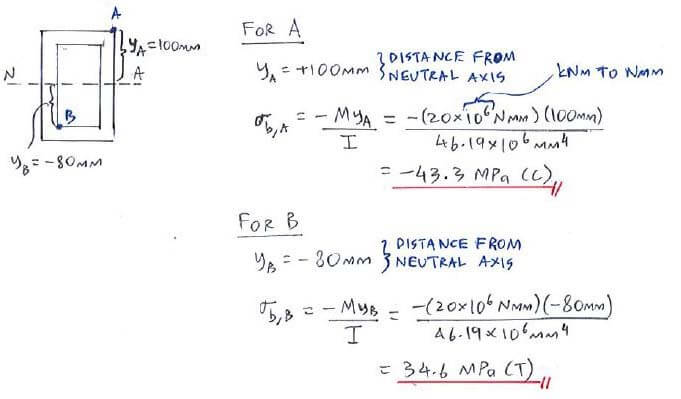 A
y_A = 100mm
N A
B
y_B = -80mm
FOR A
y_A = +100mm } DISTANCE FROM
NEUTRAL AXIS
kNm TO Nmm
σ_b,A = -My_A / I = -(20×10^6 Nmm)(100mm) / 46.19×10^6 mm^4
= -43.3 MPa (C)
FOR B
y_B = -80mm } DISTANCE FROM
NEUTRAL AXIS
σ_b,B = -My_B / I = -(20×10^6 Nmm)(-80mm) / 46.19×10^6 mm^4
= 34.6 MPa (T)